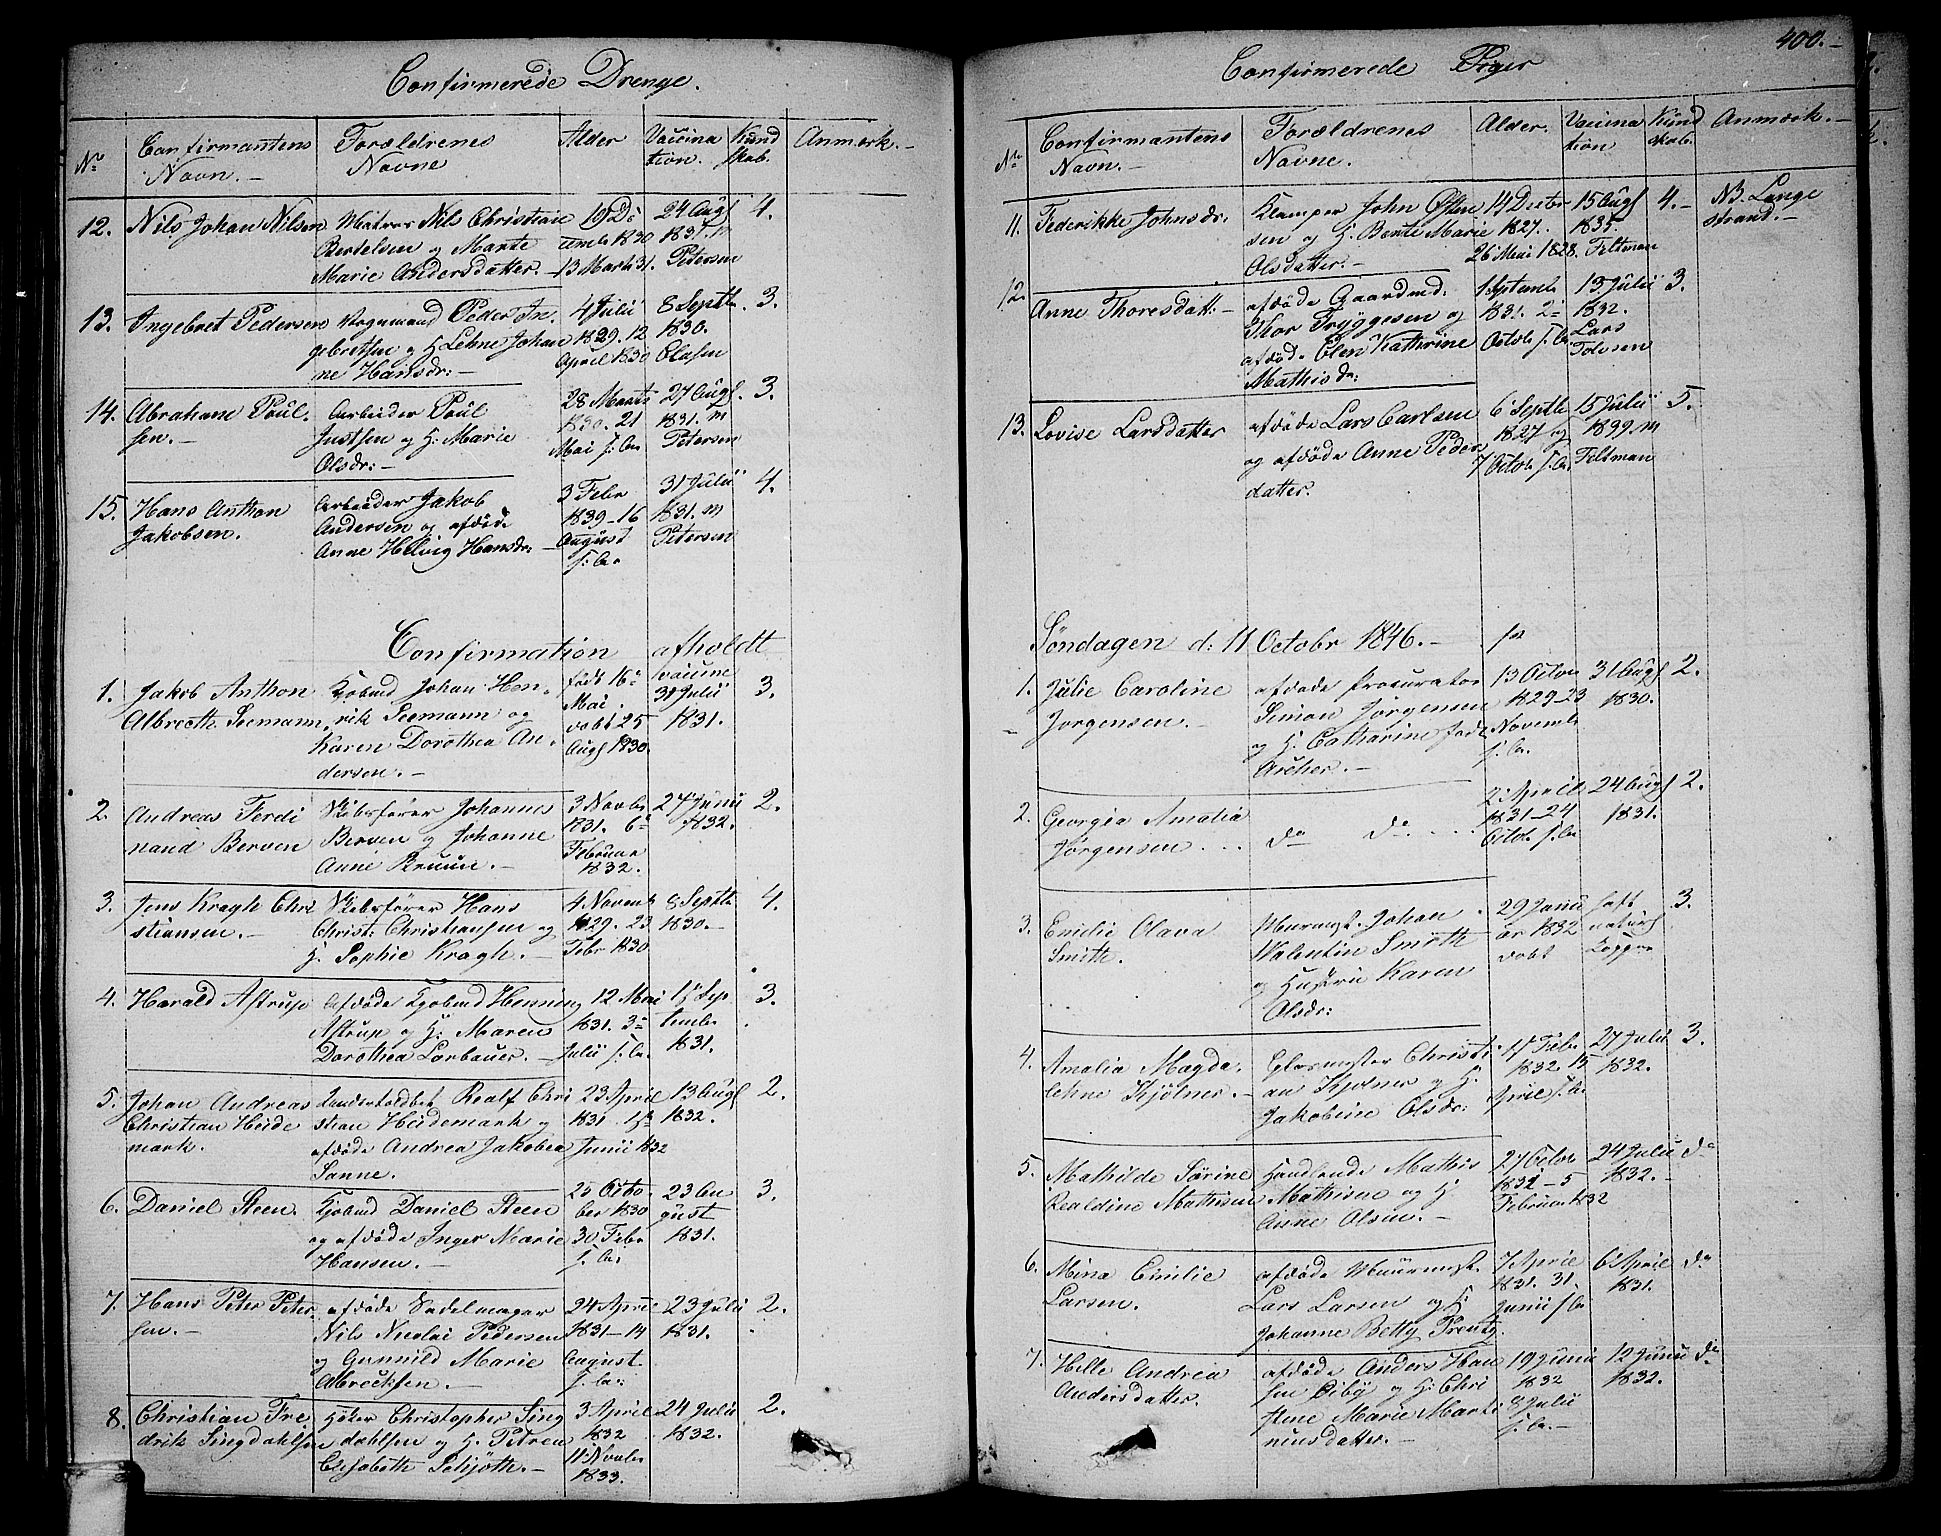 Confirmerede Drenge.
No
Confirmantens Navn.
Forældrenes Navne
Alder
Vaccina tion.
Kund skab.
Anmerk.
12. Nils Johan Nilsen
Matros Nils Christian
Bertelsen og Marte
Marie Andersdatter.
19 De
cemb 1830
13 Marts 31.
24 Augs
1831. M
Petersen
4.
13. Ingebret Pedersen
Vognmand Peder In
gebretsen og H. Lehne Johan
ne Hansdr:
4 Julii
1829. 12
April 1830
8 Septb
1830.
Olsen
3.
14. Abraham Poul
sen.
Arbeider Poul
Justsen og H. Marie
Olsdr:
28 Marts
1830. 21
Mai s. A.
27 Augs.
1831. M
Petersen
3.
15. Hans Anthon
Jakobsen.
Arbeider Jakob
Andersen og afdøde
Anne Helvig Hansdr:
3 Febr
1839-16
August
s. A.
31 Julii
1831. M
Petersen
4.
Confirmation afholdt
1. Jakob Anthon
Albrecth Seemann
Kjøbmd Johan Hen
rik Seemann og
Karen Dorothea An
dersen.
født 16
Mai
døbt 25
Augs 1830.
vaccine
31 Julii
1831.
3.
2. Andreas Ferdi
nand Berven
Skibsfører Johannes
Berven og Johanne
Anne Bruun.
3 Novbr
1831. 6
Februar
1832.
27 Junii
1832.
2.
3. Jens Kragh Chri
stiansen.
Skibsfører Hans
Christ: Christiansen og
H. Sophie Kragh.
4 Novemb
1829. 23
Febr 1830
8 Septb
1830.
4.
4. Harald Astrup
Afdøde Kjøbmd Henning
Astrup og H: Maren
Dorothea Larbauer.
12 Mai
1831. 3
Julii s. A.
17 Sep
tember
1831.
3.
5. Johan Andreas
Christian Heide
mark.
Realf Chri
stian Heidemark og
afdøde Andrea Jakobea
Sanne.
23 April
1831. 17
Junii 1832
13 Augs
1832.
2.
6. Daniel Steen
Kjøbmd Daniel Steen
og afdøde Inger Marie
Hansen.
25 Octo
ber 1830
30 Febr
s. A.
23 Au
gust
1831.
3.
7. Hans Peter Peter
sen.
afdøde Sadelmager
Nils Nicolai Pedersen
og Gunnild Marie
Albrecksen.
24 April
1831-14
August
s. A.
23 Julii
1831.
2.
8. Christian Fre
drik Singdahlsen
Høker Christopher Sing
dahlsen og H. Petrea
Elisabeth Schjøth.
3 April
1832
11 Novbr
1833.
24 Julii
1832.
2.
400.
Confirmerede Piger
No
Confirmantens Navn.
Forældrenes Navne.
Alder.
Vaccina tion
Kund skab.
Anmærk.
11. Federikke Johnsdr.
Klamper John Østen
sen og H. Bente Marie
Olsdatter.
14 Decbr
1827.
26 Mai 1828.
15 Augs
1835.
Feltman
4.
NB. Lange
strand.
12. Anne Thoresdatt:
afdøde Gaardmd:
Thor Tryggesen og
afdøde Elen Kathrine
Mathisdr:
1 Septemb
1831. 2
Octob s. A.
13 Julii
1832.
Lars
Tolvsen
3.
13. Lovise Larsdatter
afdøde Lars Carlsen
og afdøde Anne Peder
datter.
6 Septb
1827 og
7 Octob s. A.
15 Julii
1899. M
Feltman
5.
Søndagen d: 11 Octobr 1846.
1. Julie Caroline
Jørgensen.
afdøde Procurator
Simon Jørgensen
og H. Catharine føde
Archer.
13 Octbr
1829-23
Novembr
s. A.
31 Augs
1830.
2.
2. Georgia Amalia
Jørgensen ...
do do
2 April
1831-24
Octob s. A.
24 Augs
1831.
2.
3. Emilie Olava
Smith.
Murmst. Johan
Valentin Smith
og Hustru Karen
Olsdr:
29 Janu
ar 1832
døbt
haft
naturl
Kopper
3.
4. Amalia Magda
lehne Kjølner.
Glarmester Christi
an Kjølner og H.
Jakobine Olsdr:
17 Febr
1832 15
April s. A.
27 Julii
1832.
3.
5. Mathilde Sørine
Realdine Mathisen
Handlende Mathis
Mathisen og H.
Anne Olsen.
27 Octbr
1831-5
Februar 1832
24 Julii
1832.
do
6. Mina Emilie
Larsen.
afdøde Muurmst.
Lars Larsen og H.
Johanne Betty Trentz.
7 April
1831. 31.
Junii s. A
6 April
1831.
do
7. Helle Andrea
Andersdatter.
afdøde Anders Han
sen Øiby og H: Chri
stine Marie Marti
niusdatter.
19 Junii
1832
8 Julii
s. A.
12 Junii
1832.
do